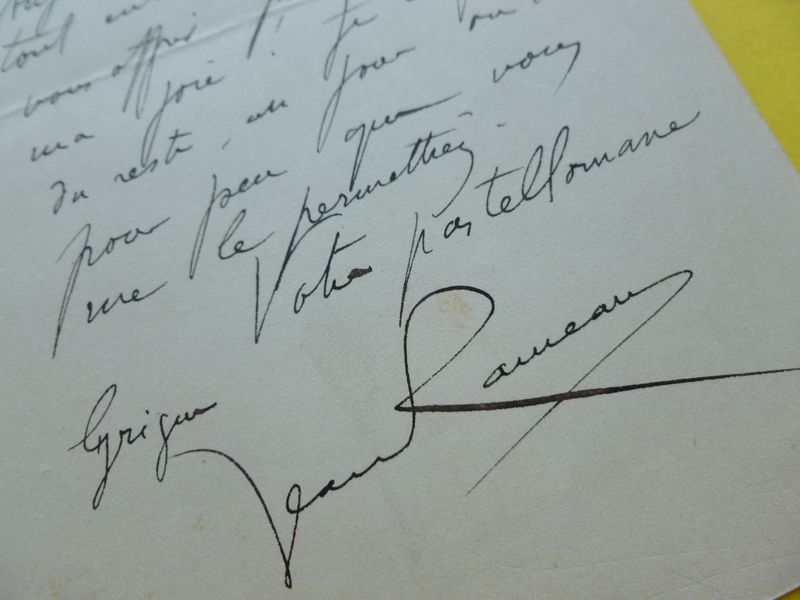 tout
vous offrir
ma joie ! Je
du reste, un jour ou
pour peu que vous
me le permettiez.
Votre pastellomane
lyrique
Jean Rameau